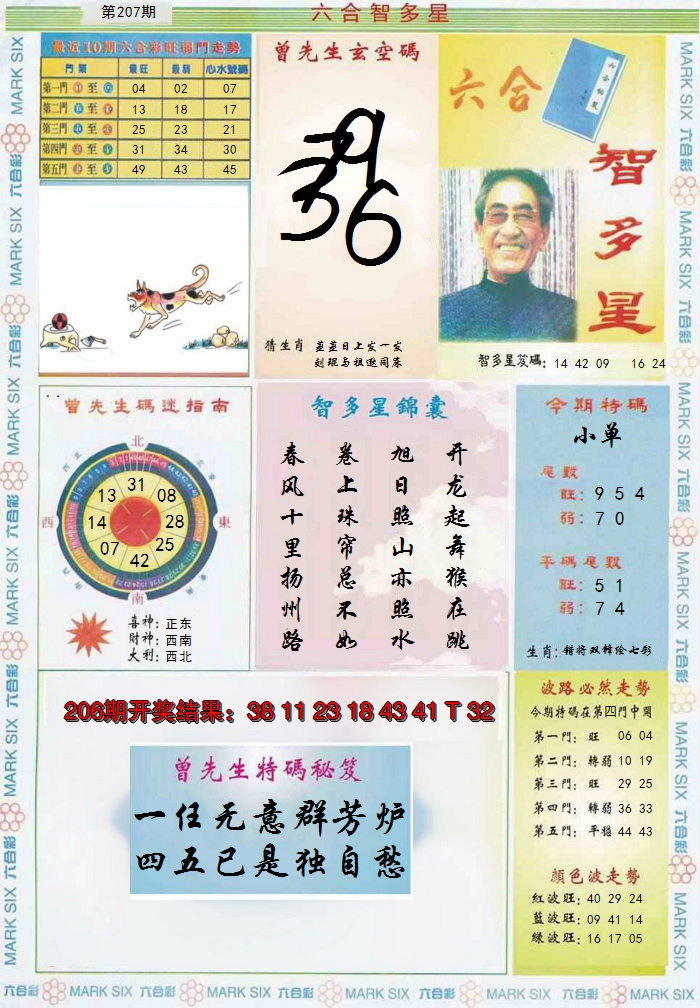 第207期
六合智多星
最近10期六合彩旺弱門走勢
門票 最旺 最弱 心水號碼
第一門 至 04 02 07
第二門 至 13 18 17
第三門 至 25 23 21
第四門 至 31 34 30
第五門 至 49 43 45
曾先生玄空碼
猜生肖 蓝蓝日上发一发
刘琨与祖逖同床
六合
智多星
智多星笈碼: 14 42 09 16 24
曾先生碼迷指南
北
西 東
南
31
13 08
14 28
07 25
42
喜神: 正东
财神: 西南
大利: 西北
智多星錦囊
春风十里扬州路
卷上珠帘总不如
旭日照山亦照水
开龙起舞猴在跳
今期特碼
小单
尾数
旺: 9 5 4
弱: 7 0
平碼尾数
旺: 5 1
弱: 7 4
生肖: 错将双锋绘七彩
206期开奖结果: 38 11 23 18 43 41 T 32
曾先生特碼秘笈
一任无意群芳炉
四五已是独自愁
波路必然走勢
今期特碼在第四門中開
第一門: 旺 06 04
第二門: 轉弱 10 19
第三門: 旺 29 25
第四門: 轉弱 36 33
第五門: 平穩 44 43
顏色波走勢
紅波旺: 40 29 24
藍波旺: 09 41 14
绿波旺: 16 17 05
MARK SIX 六合彩